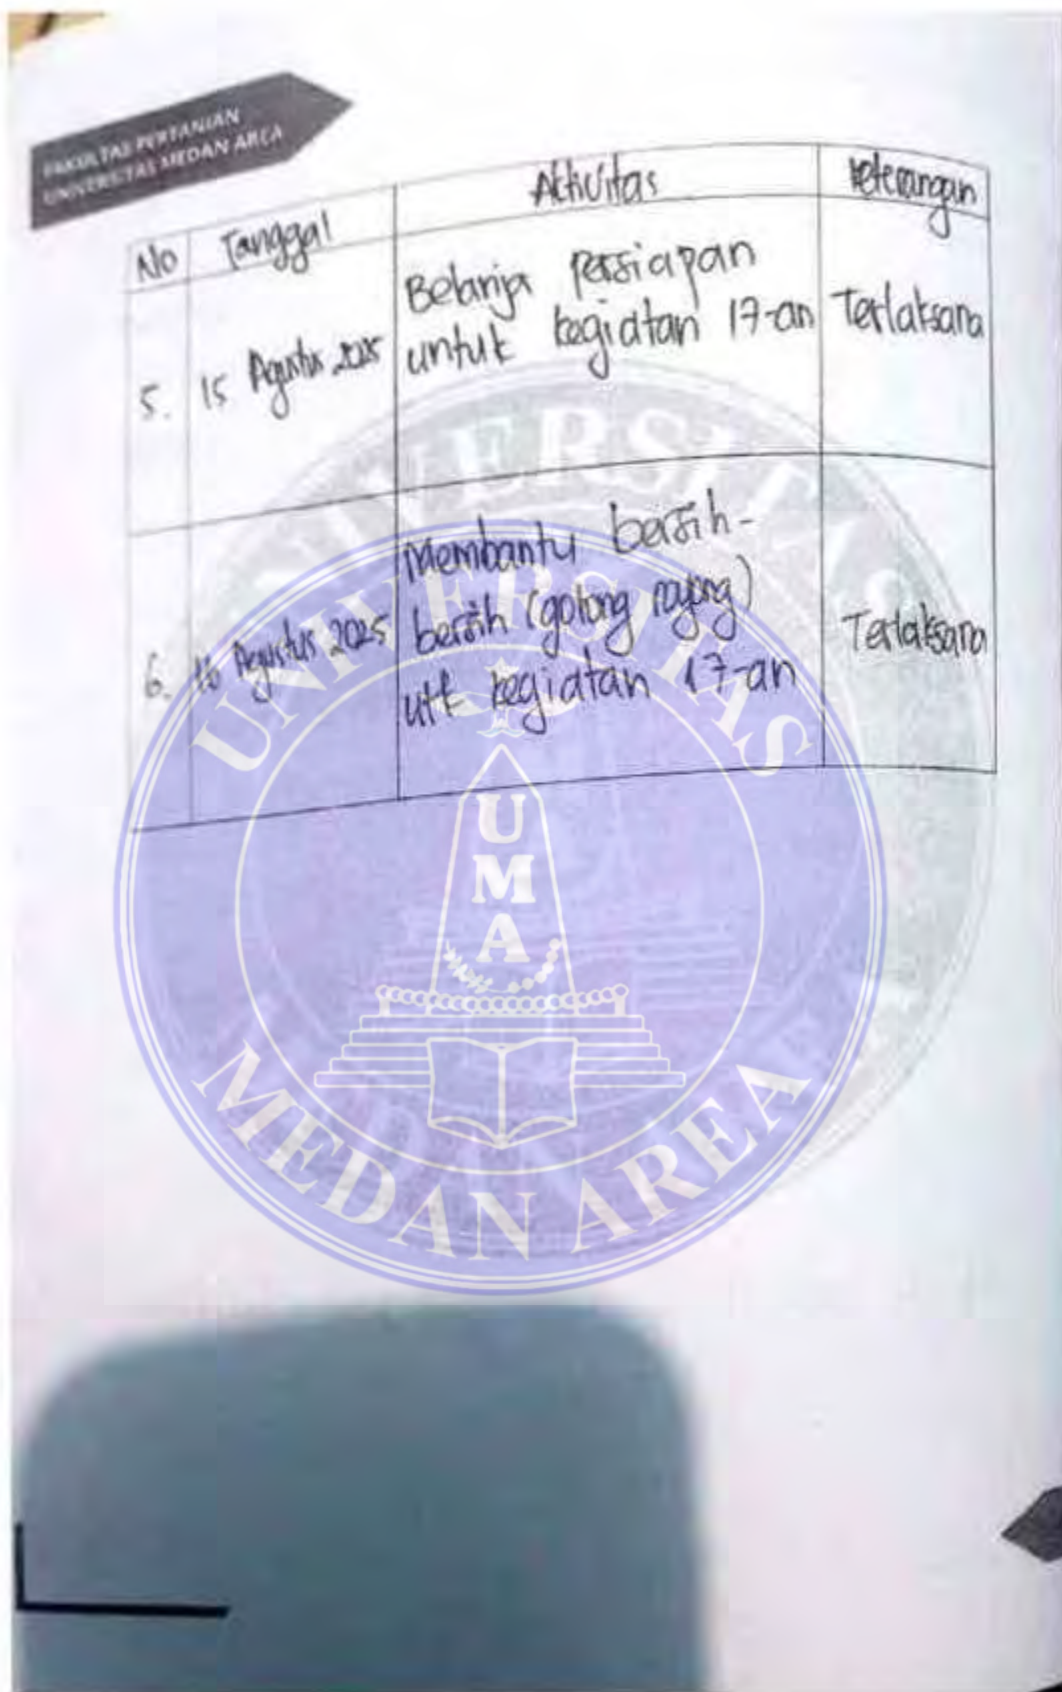 FAKULTAS PERTANIAN
UNIVERSITAS MEDAN AREA
No Tanggal Aktivitas Keterangan
5. 15 Agustus 2025 Belanja persiapan
untuk kegiatan 17-an Terlaksana
6. 16 Agustus 2025 Membantu bersih-
bersih (gotong royong)
utk kegiatan 17-an Terlaksana
UNIVERSITAS
UMA
MEDAN AREA